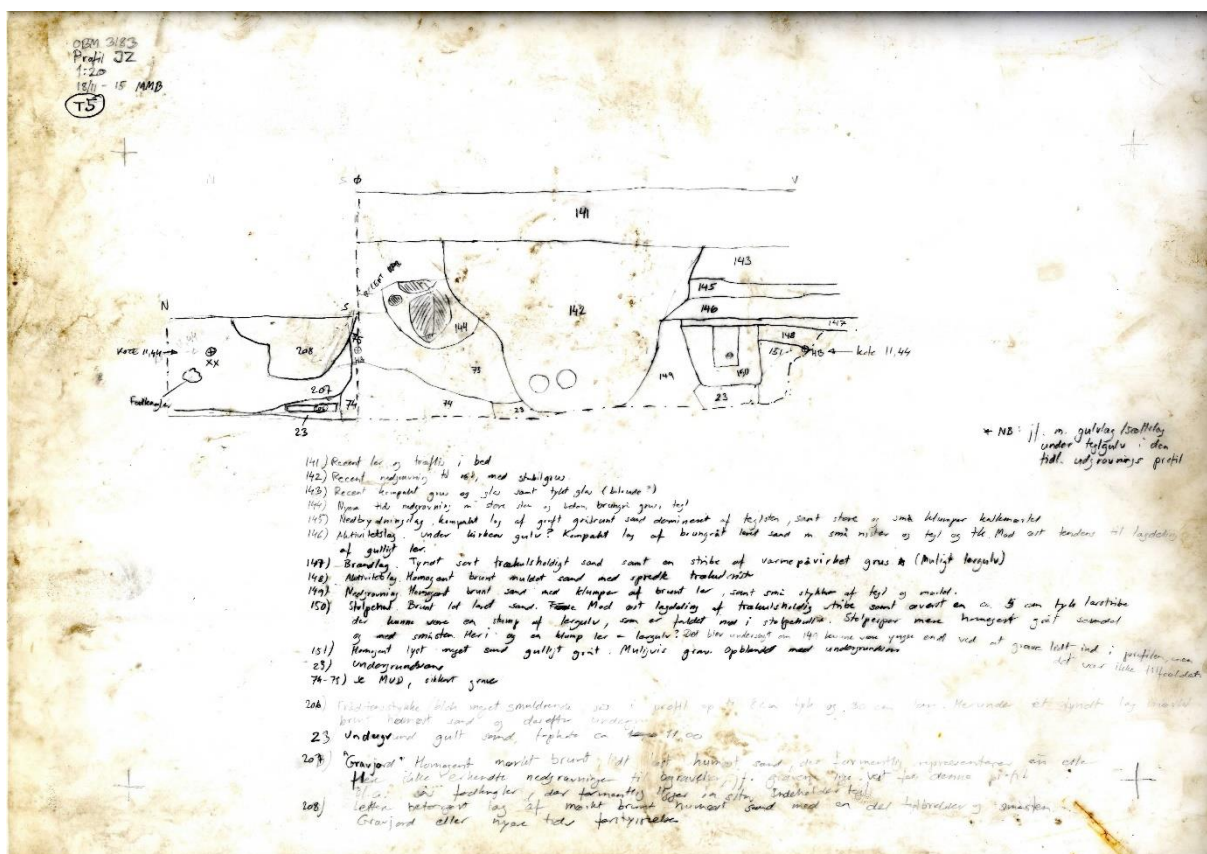 OBM 3183
Profil JZ
1:20
18/11 - 15 MMB
T5
N S Ø V
141
RECENT NED
143
145
142
146
144
147
N S
75
148
151
HB kote 11,44
KOTE 11,44
XX
208
73
149
150
207
74
74
23
23
206
Fodknogler
23
* NB: jf. m. gulvlag
under teglgulv i den
tidl. udgravnings profil
141) Recent ler og træflis i bed
142) Recent nedgravning til rør, med stabilgrus
143) Recent kompakt grus og glas samt tykt glas
144) Nyere tids nedgravning m store sten og beton, brungrå grus, tegl
145) Nedbrydningslag. kompakt lag af groft gråbrunt sand domineret af teglsten, samt store og små klumper kalkmørtel
146) Aktivitetslag. under kirkens gulv? Kompakt lag af brungråt leret sand m små nister og tegl og tk. Mod øst tendens til lagdeling
af gulligt ler.
147) Brandlag. Tyndt sort trækulsholdigt sand samt en stribe af varmepåvirket grus * (Muligt lergulv)
148) Aktivitetslag. Homogent brunt muldet sand med spredte trækulsnist
149) Nedgravning Homogent brunt sand med klumper af brunt ler, samt små stykker af tegl og mørtel.
150) Stolpehul. Brunt lidt leret sand. Mod øst lagdeling af trækulsholdig stribe samt øverst en ca. 5 cm tyk lerstribe
der kunne være en stump af lergulv, som er faldet ned i stolpehullet. Stolpespor mere homogent gråt sandet
og med småsten. Heri og en klump ler = lergulv? Det blev undersøgt om 149 kunne være yngre end ved at grave lidt ind i profilen, men
det var ikke tilfældet
151) Homogent lyst meget sand gulligt gråt. Muligvis grav. Opblandet med undergrunden
23) Undergrunden
74-75) Se MUD, sikkert grave
206) meget smuldrende, ses i profil op til 8 cm tyk og 30 cm bred. Herunder et tyndt lag
brunt humøst sand og derefter undergrund
23 Undergrund gult sand, topkote ca 11,00
207) "Gravjord" Homogent mørkt brunt lidt humøst sand der formentlig repræsenterer en eller
flere ikke erkendte nedgravninger til begravelser, jf. gravene lige vest for denne profil
Bl.a. ses fodknogler, der formentlig ligger in situ. Indeholder tegl
208) Let afgrænset lag af mørkt brunt humøst sand med en del tegl og småsten
Gravjord eller nyere tids forstyrrelse